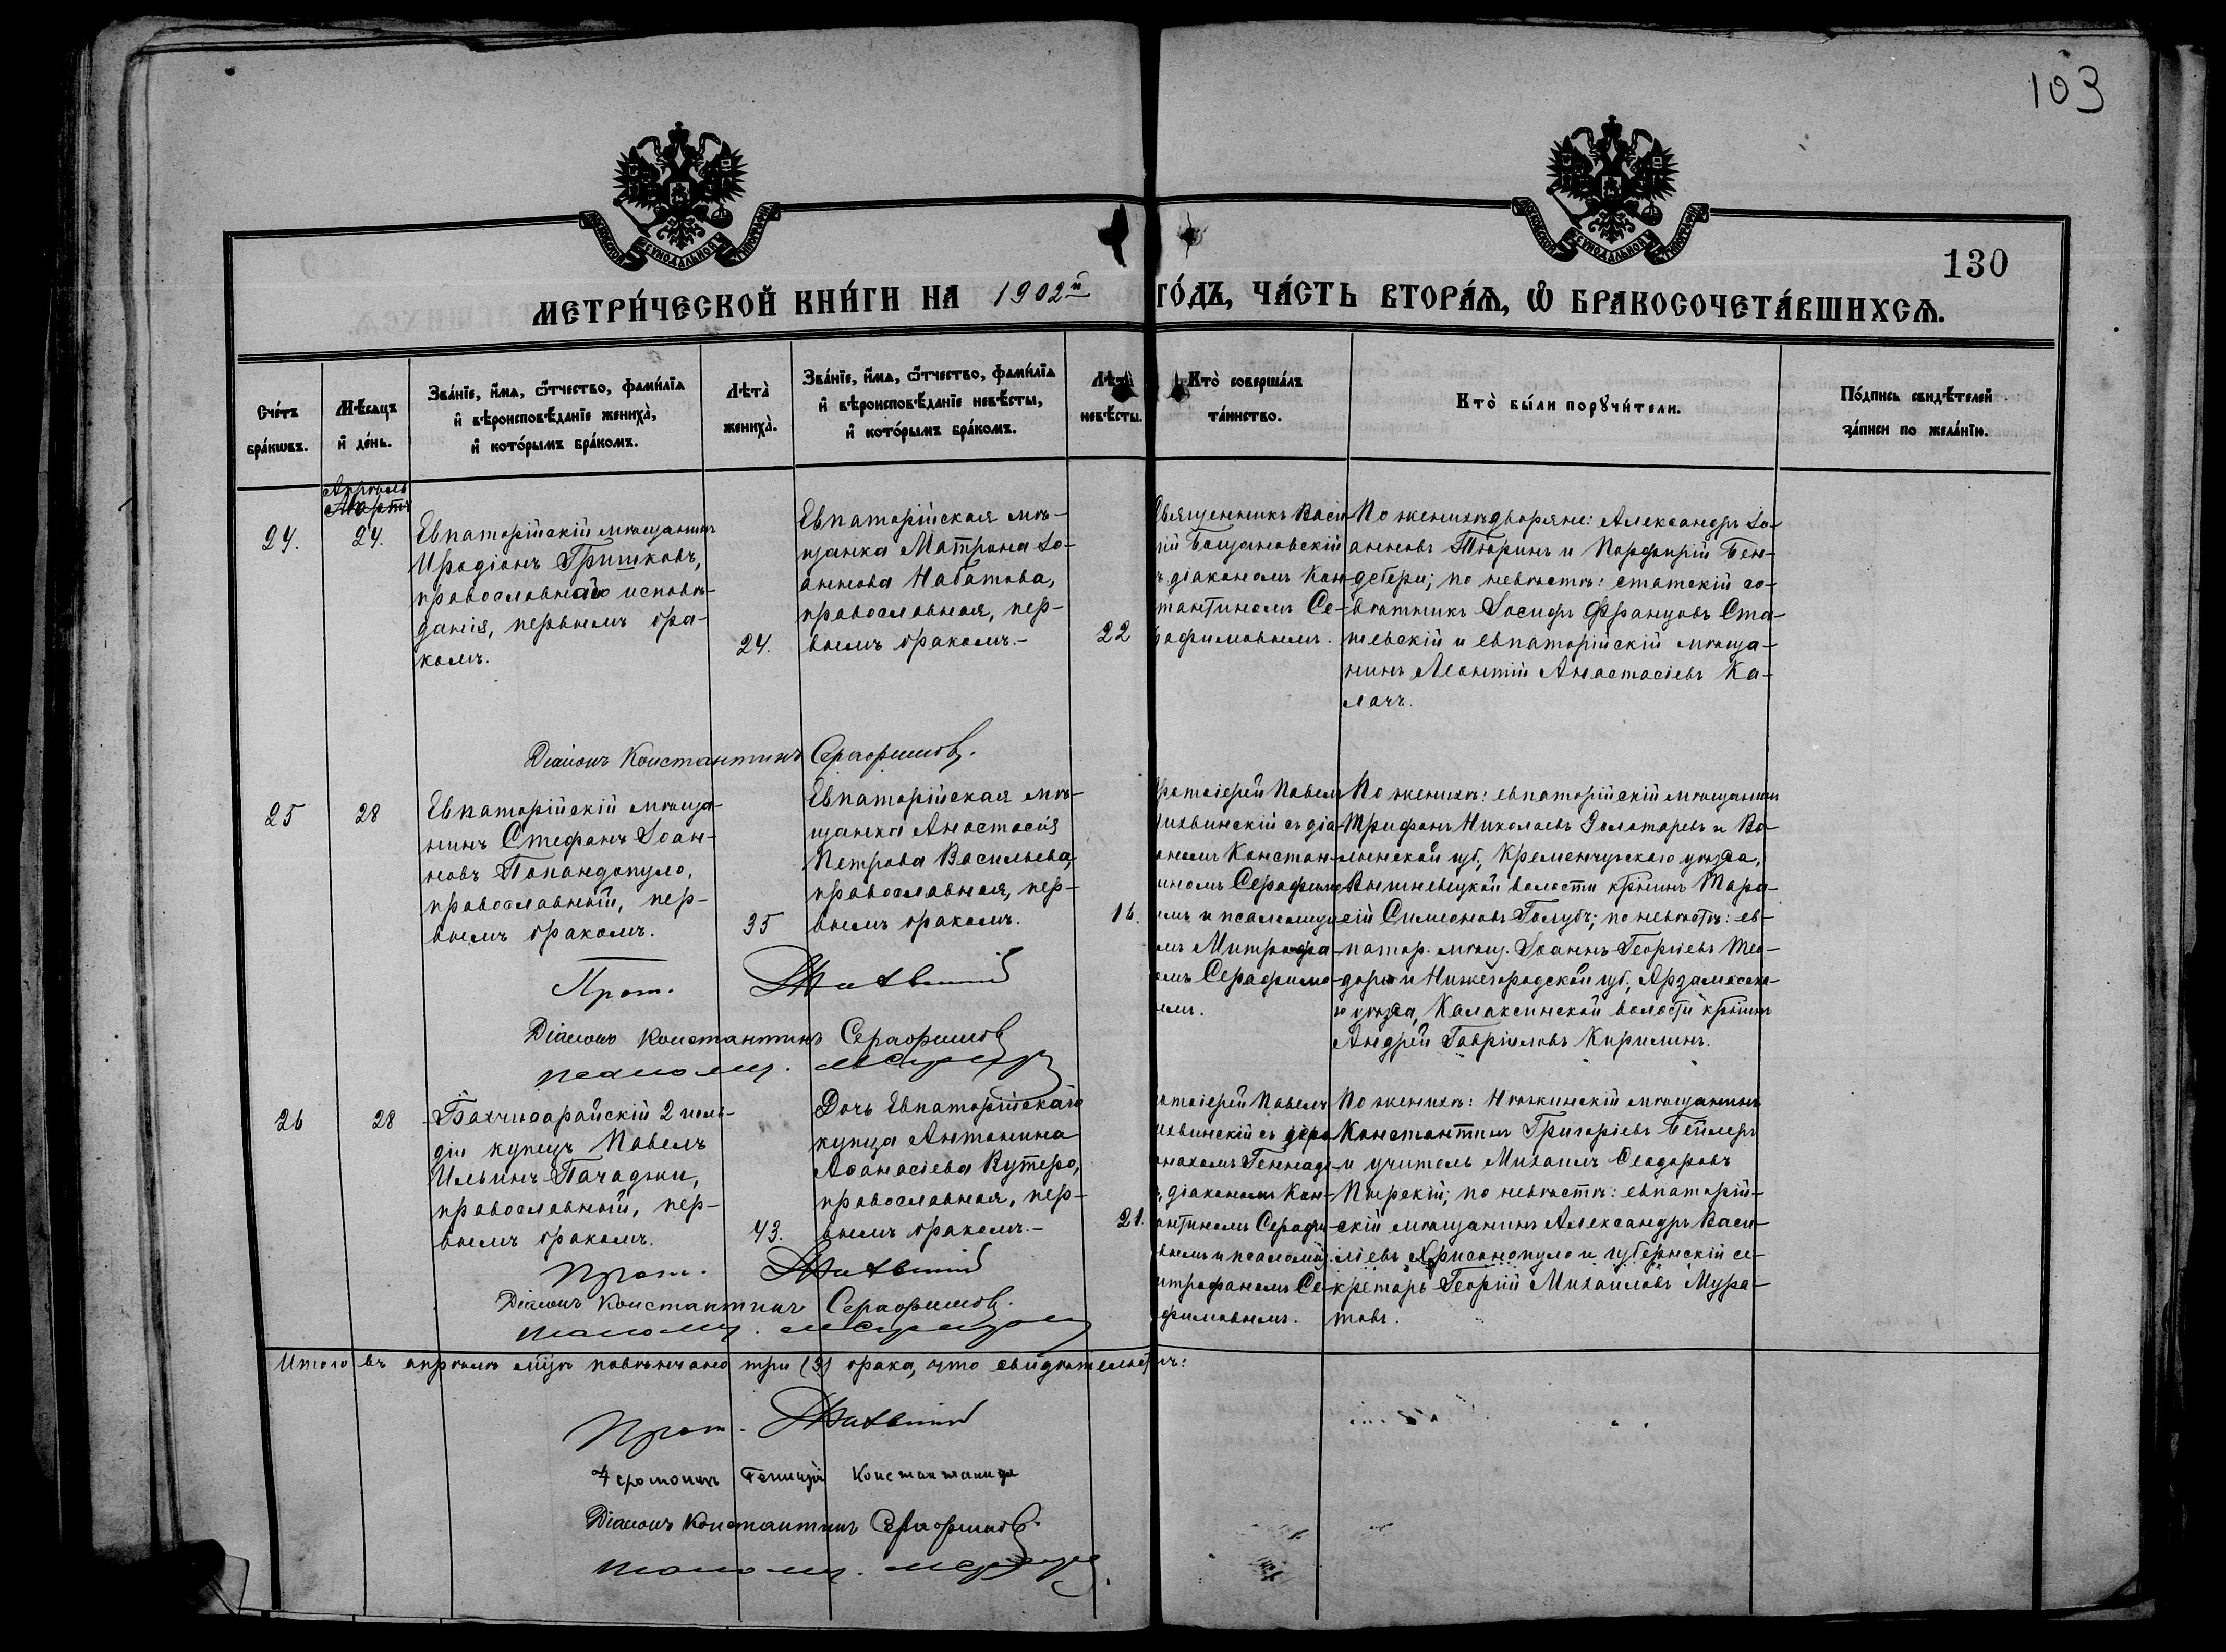 103
130
МЕТРИ́ЧЕСКОЙ КНИ́ГИ НА 1902й ГО́ДЪ, ЧА́СТЬ ВТОРА́Ѧ, Ѽ БРАКОСОЧЕТА́ВШИХСѦ.
Сче́тъ
бра́кωвъ.
Мѣ́сяцъ
и҆ де́нь.
Зва́нїе, и҆́мѧ, ѻ҆́тчество, фами́лїѧ
и҆ вѣроисповѣ́данїе жениха̀,
и҆ кото́рымъ бра́комъ.
Лѣта̀
жениха̀.
Зва́нїе, и҆́мѧ, ѻ҆́тчество, фами́лїѧ
и҆ вѣроисповѣ́данїе невѣ́сты,
и҆ кото́рымъ бра́комъ.
Лѣта̀
невѣ́сты.
Кто̀ соверша́лъ
та́инство.
Кто̀ бы́ли порꙋчи́тели.
По́дпись свидѣ́телей
за́писи по жела́нїю.
Апрѣль
Мартъ
24.
24.
Евпаторійскій мѣщанинъ
Иродіонъ Гришковъ,
православнаго исповѣ-
данія, первымъ бра-
комъ.
24.
Евпаторійская мѣ-
щанка Матрона Іо-
аннова Набатова,
православная, пер-
вымъ бракомъ.-
22
Священникъ Васи
лій Бощановскій
ъ діакономъ Кон-
тантиномъ Се-
рафимовымъ.
По женихѣ дворяне: Александръ Іо-
анновъ Тюринъ и Порфирій Бен-
дебери; по невѣстѣ: статскій со-
вѣтникъ Іосифъ Францовъ Ста-
шевскій и евпаторійскій мѣща-
нинъ Леонтій Анастасіевъ Ка-
лачъ.
Діаконъ Константинъ Серафимовъ.
25
28
Евпаторійскій мѣща-
нинъ Стефанъ Іоан-
новъ Попандопуло,
православный, пер-
вымъ бракомъ.
35
Евпаторійская мѣ-
щанка Анастасія
Петрова Васильева,
православная, пер-
вымъ бракомъ.
16.
ротоіерей Павелъ
ихвинскій съ діа-
ономъ Констан-
иномъ Серафимо
ымъ и псаломщи
омъ Митрофа-
омъ Серафимо-
ымъ.
По женихѣ: евпаторійскій мѣщанинъ
Трифонъ Николаевъ Золотаревъ и Во-
лынской губ., Кременчугскаго уѣзда,
Вышневецкой волости кр-нинъ Тара-
сій Симеоновъ Голубъ; по невѣстѣ: ев-
патор. мѣщ. Іоаннъ Георгіевъ Тео-
дори и Нижегородской губ., Арзамасска-
го уѣзда, Калаксинской волости кр-нинъ
Андрей Гавріиловъ Кирилинъ.
Прот. Лихвинскій
Діаконъ Константинъ Серафимовъ
псаломщ.
26
28
Бахчисарайскій 2 гиль-
діи купецъ Павелъ
Ильинъ Пачаджи,
православный, пер-
вымъ бракомъ.
43.
Дочь Евпаторійскаго
купца Антонина
Аѳанасіева Кутеро,
православная, пер-
вымъ бракомъ.-
21.
отоіерей Павелъ
ихвинскій съ іеро
онахомъ Геннаді-
, діакономъ Кон-
антиномъ Серафи
вымъ и псаломщ.
итрофаномъ Се-
фимовымъ.
По женихѣ: Нѣжинскій мѣщанинъ
Константинъ Григоріевъ Бейлеръ
и учитель Михаилъ Ѳеодоровъ
Пырскій; по невѣстѣ: евпаторій-
скій мѣщанинъ Александръ Васи-
ліевъ Хрисанопуло и губернскій се-
кретарь Георгій Михаиловъ Мура-
товъ.
Прот. Лихвинскій
Діаконъ Константинъ Серафимовъ.
псаломщ.
Итого въ апрѣлѣ м-цѣ повѣнчано три (3) брака, что свидѣтельств-тъ:
Прот. Лихвинскій
Іеромонахъ Геннадій
Діаконъ Константинъ Серафимовъ.
псаломщ.